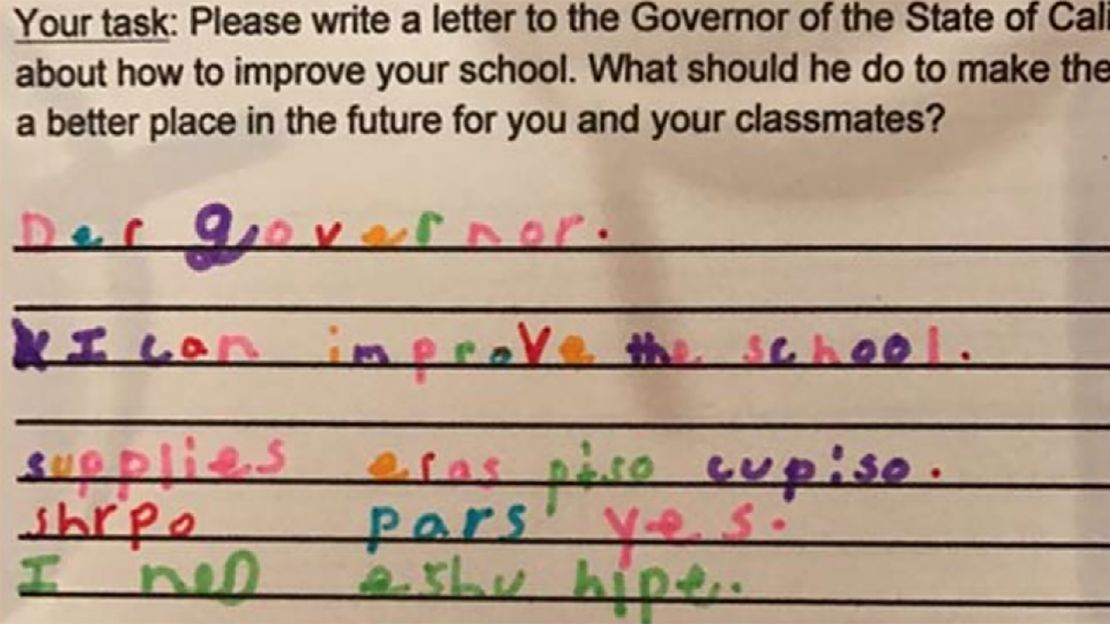 Your task: Please write a letter to the Governor of the State of Cali
about how to improve your school. What should he do to make the
a better place in the future for you and your classmates?
Der governor.
I can improve the school.
supplies eras piso cupiso.
shrpo pars yes.
I neD eshu hipe..